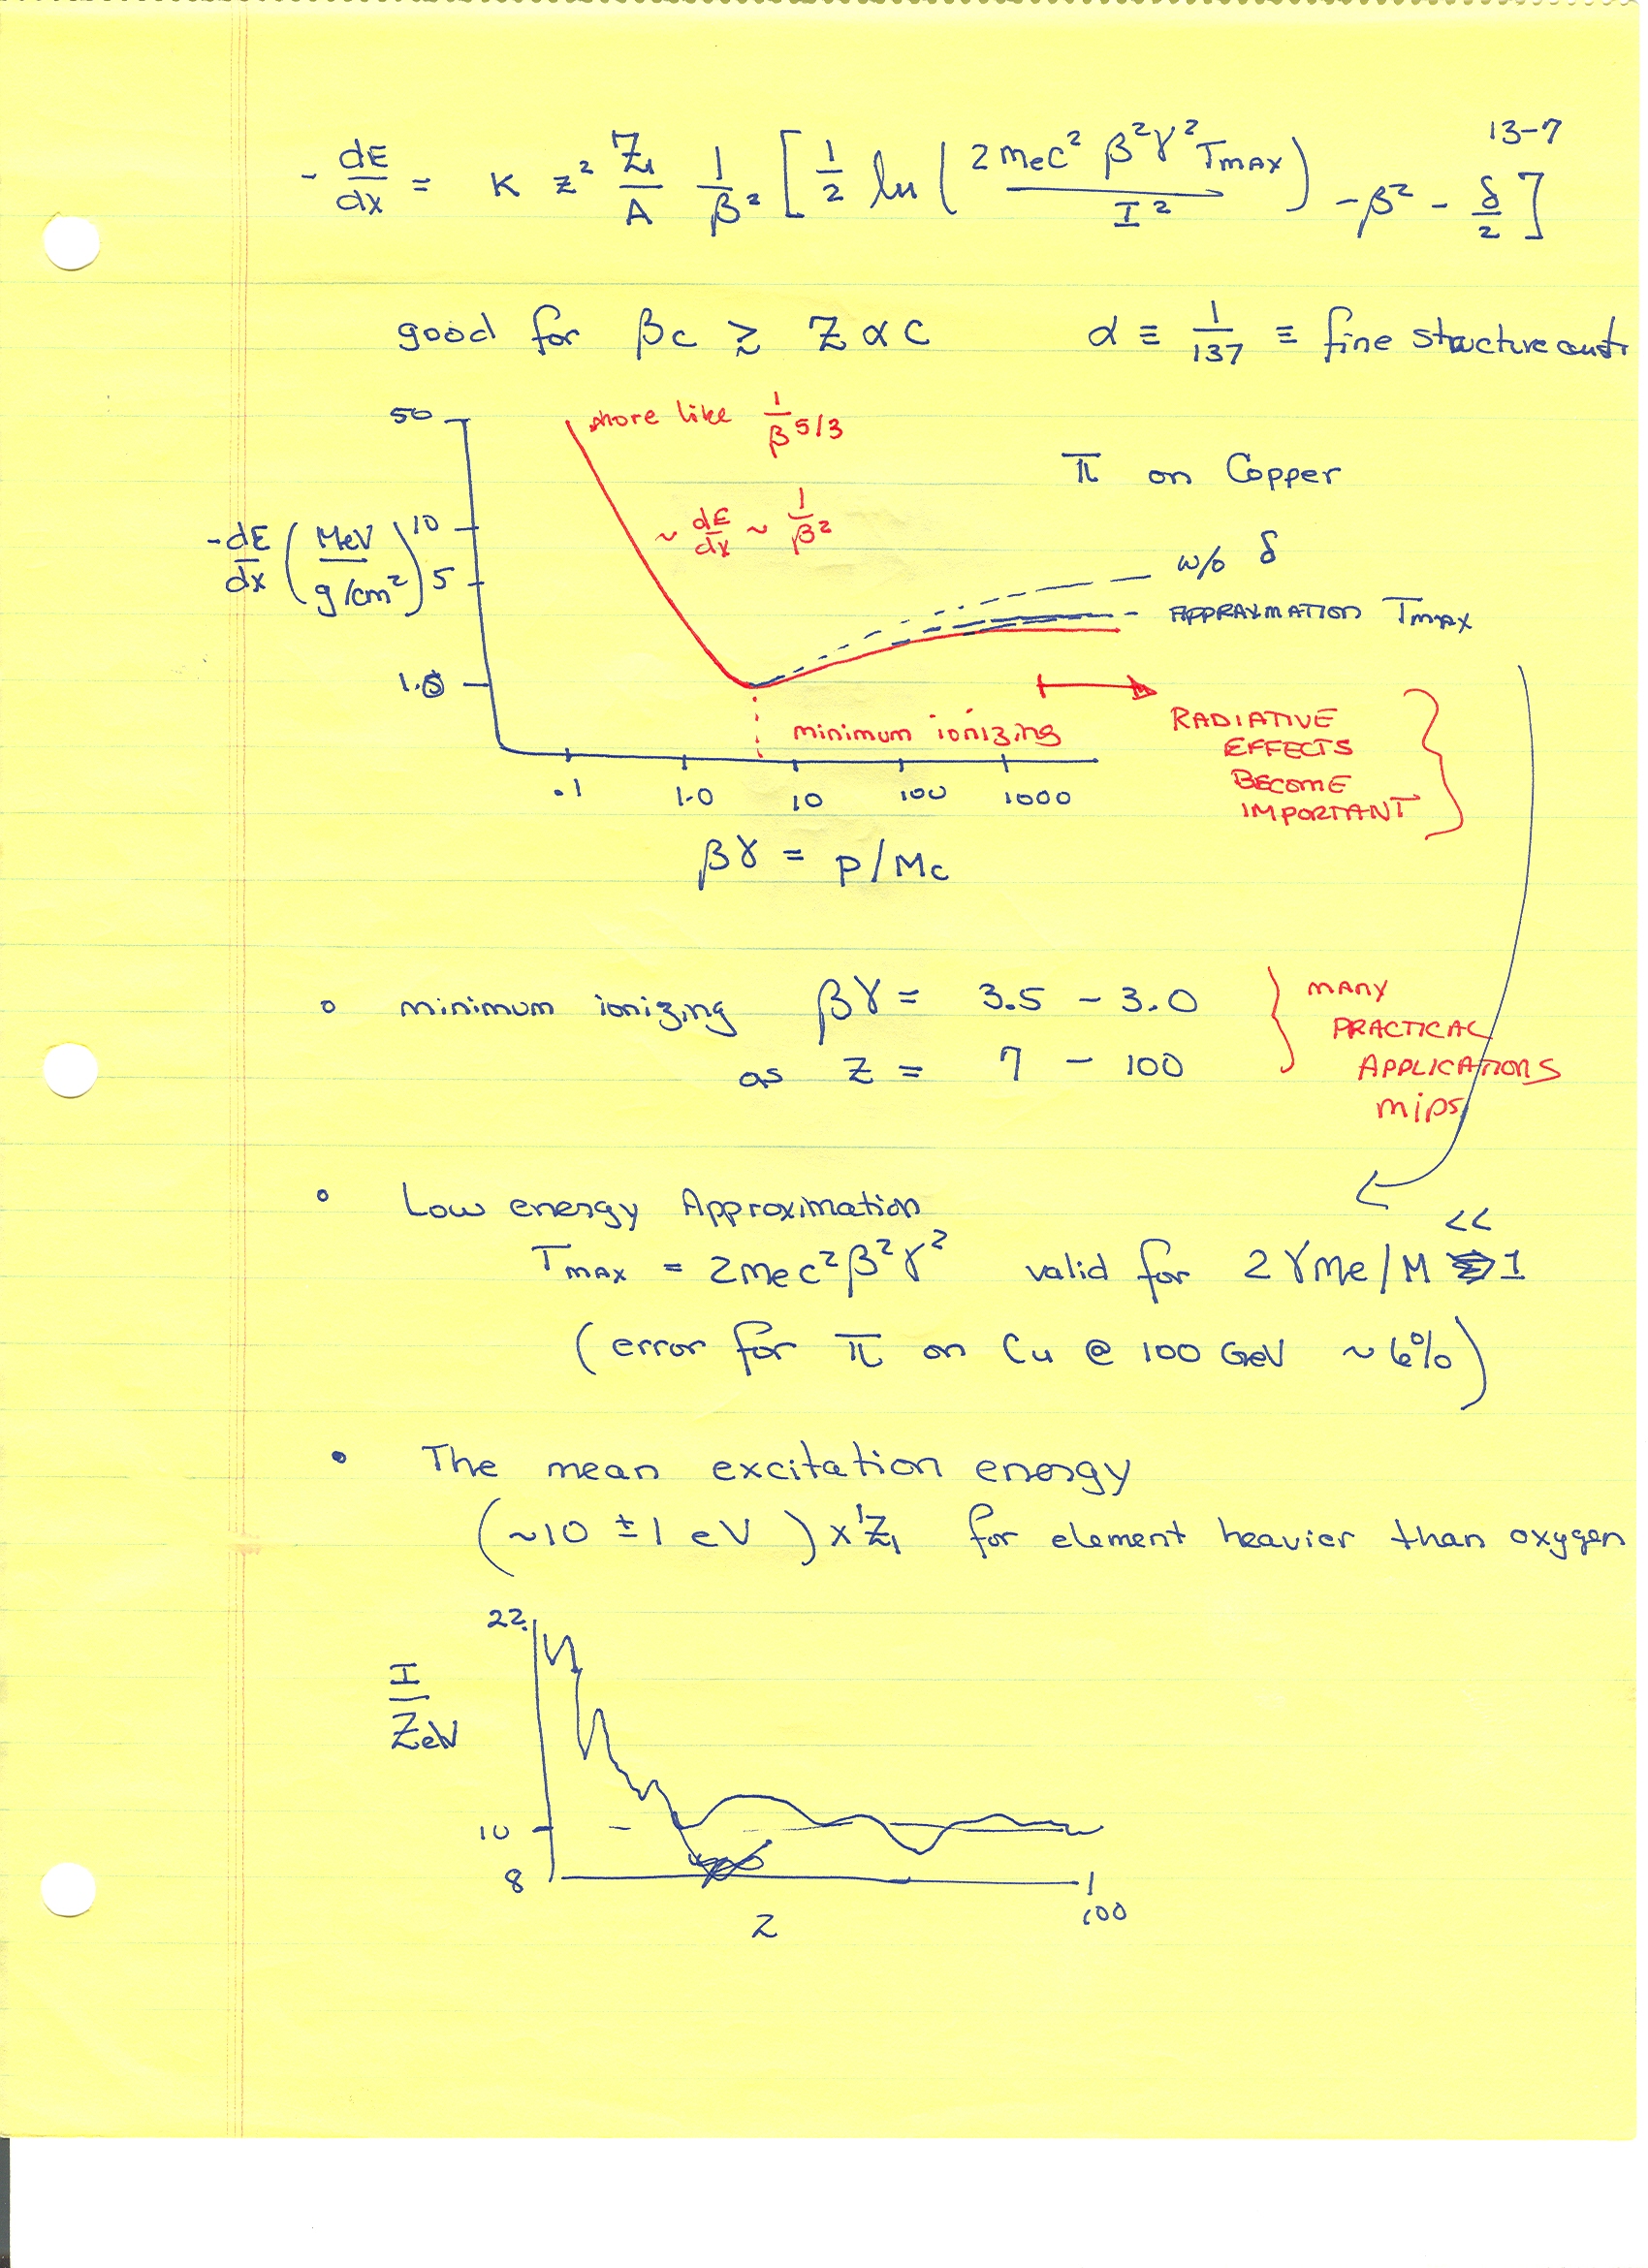 13-7
- dE/dx = K z² Z/A 1/β² [ 1/2 ln ( 2 mec² β²γ² TMAX / I² ) - β² - δ/2 ]
good for βc ≳ Z α c α ≡ 1/137 ≡ fine structure const.
50
more like 1/β^5/3
π on Copper
10
~ dE/dx ~ 1/β²
-dE/dx ( MeV / g/cm² )
5
w/o δ
APPROXIMATION TMAX
1.0
minimum ionizing
RADIATIVE
EFFECTS
BECOME
IMPORTANT
.1 1.0 10 100 1000
βγ = p/Mc
minimum ionizing βγ = 3.5 - 3.0
as Z = 7 - 100
MANY
PRACTICAL
APPLICATIONS
mips
• Low energy Approximation
TMAX = 2mec²β²γ² valid for 2γme/M << 1
(error for π on Cu @ 100 GeV ~ 6%)
• The mean excitation energy
(~10 ± 1 eV) x Z for element heavier than oxygen
22
I/Z eV
10
8
100
Z